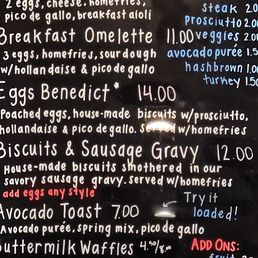 2 eggs, cheese, homefries,
pico de gallo, breakfast aioli
Breakfast Omelette 11.00
3 eggs, homefries, sourdough
w/hollandaise & pico de gallo
steak 2.0
prosciutto 2.0
veggies 2.00
avocado purée 1.5
hashbrown 1.00
turkey 1.50
Eggs Benedict* 14.00
Poached eggs, house-made biscuits w/prosciutto,
hollandaise & pico de gallo. Served w/homefries
Biscuits & Sausage Gravy 12.00
House-made biscuits smothered in our
savory sausage gravy. served w/homefries
add eggs any style
Avocado Toast 7.00
Avocado purée, spring mix, pico de gallo
Try it
loaded!
Buttermilk Waffles
ADD Ons: